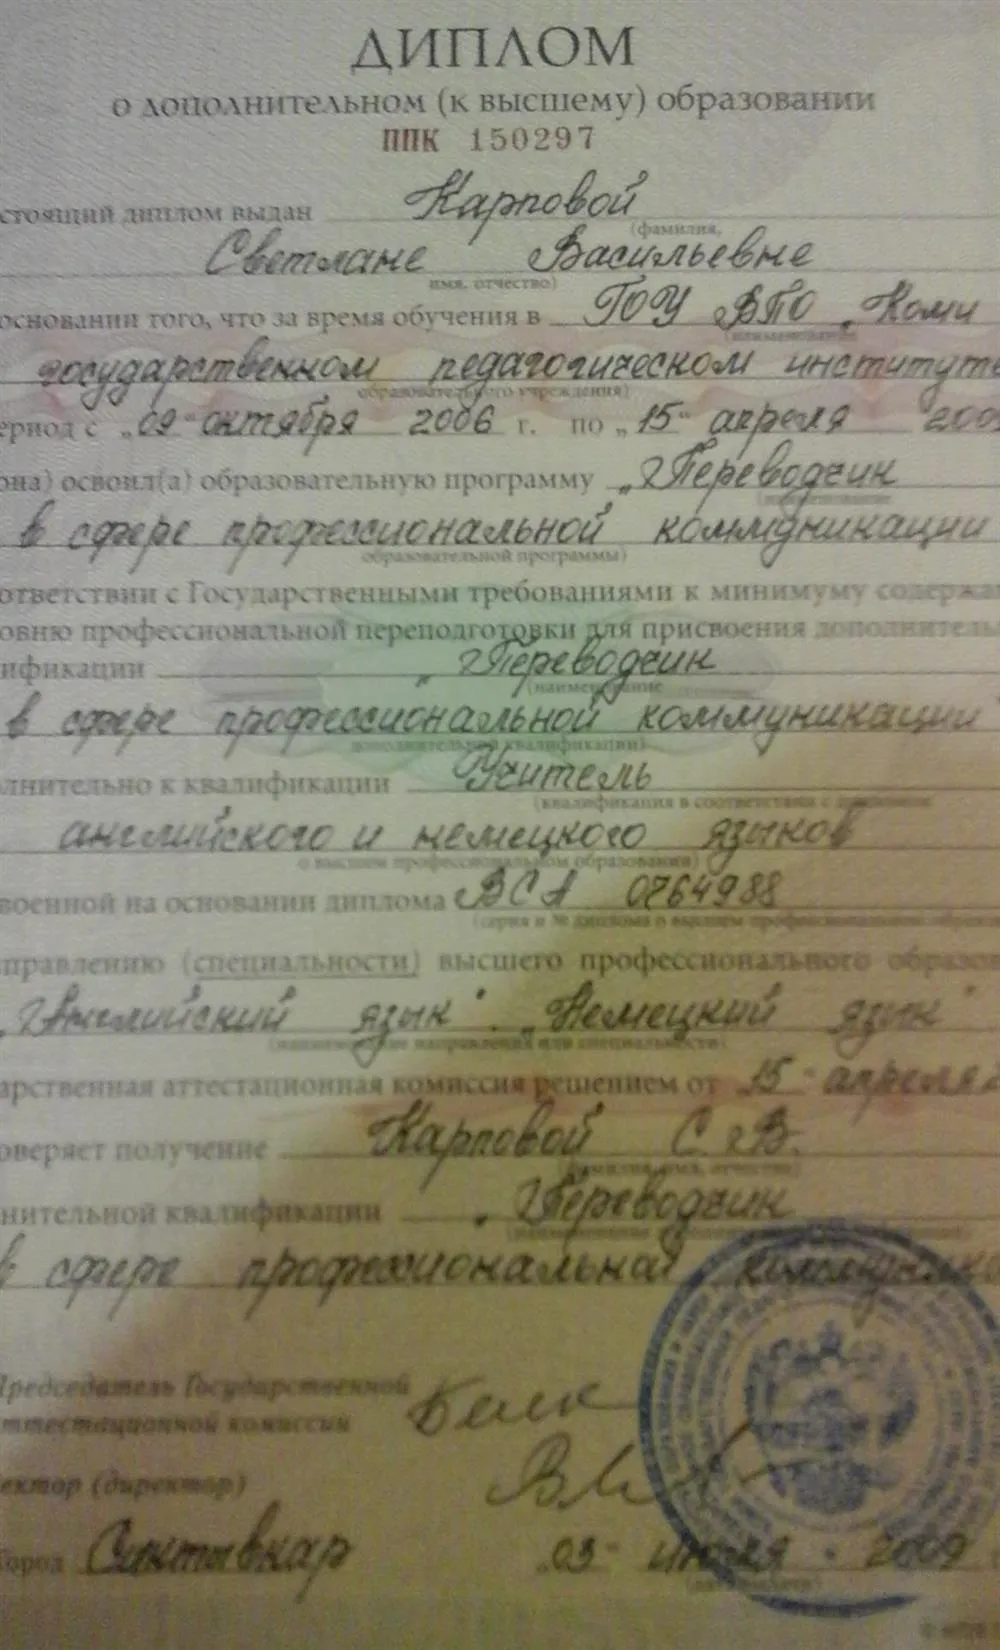 ДИПЛОМ
о дополнительном (к высшему) образовании
ППК 150297
стоящий диплом выдан Карповой
(фамилия,
Светлане Васильевне
имя, отчество)
основании того, что за время обучения в ГОУ ВПО „Коми
(наименование
государственном педагогическом институте
образовательного учреждения)
ериод с „09" октября 2006 г. по „15" апреля 200
она) освоил(а) образовательную программу „Переводчик
(наименование
в сфере профессиональной коммуникации
образовательной программы)
ответствии с Государственными требованиями к минимуму содержа
овню профессиональной переподготовки для присвоения дополнитель
ификации „Переводчик
(наименование
в сфере профессиональной коммуникации
дополнительной квалификации)
лнительно к квалификации Учитель
(квалификация в соответствии с дипломом
английского и немецкого языков
о высшем профессиональном образовании)
военной на основании диплома ВСА 0764988
(серия и № диплома о высшем профессиональном образо
правлению (специальности) высшего профессионального образов
„Английский язык". „Немецкий язык"
(наименование направления или специальности)
арственная аттестационная комиссия решением от 15" апреля
оверяет получение Карповой С. В.
(фамилия, имя, отчество)
нительной квалификации „Переводчик
в сфере профессиональной коммуника
Председатель Государственной
аттестационной комиссии
ектор (директор)
Город Сыктывкар „03" июля 2009